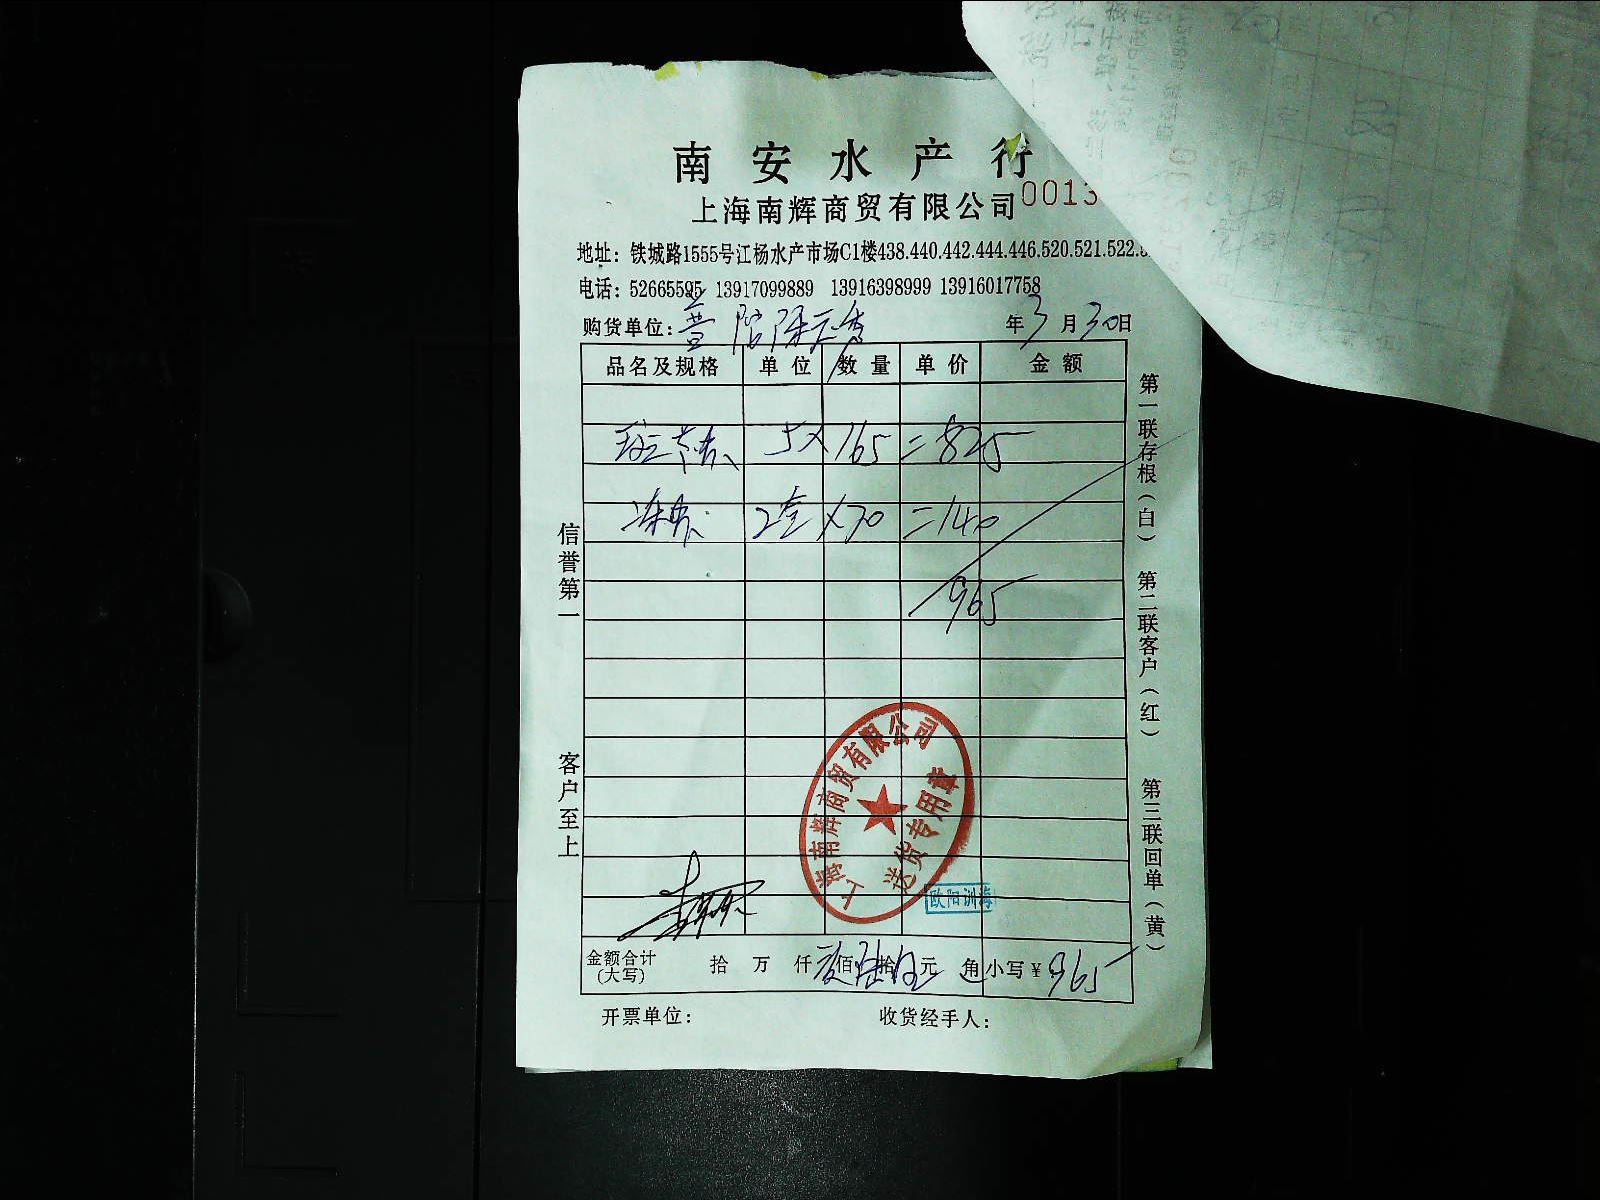 南安水产行
上海南辉商贸有限公司 0013
地址：铁城路1555号江杨水产市场C1楼438.440.442.444.446.520.521.522.5
电话：52665595 13917099889 13916398999 13916017758
购货单位：普陀 年3月30日
品名及规格 单位 数量 单价 金额
5×165=825
2盒×70=140
965
信誉第一
客户至上
第一联存根(白) 第二联客户(红) 第三联回单(黄)
上海南辉商贸有限公司
送货专用章
欧阳训海
金额合计(大写) 拾 万 仟 玖佰陆拾伍元 角 小写¥965
开票单位： 收货经手人：